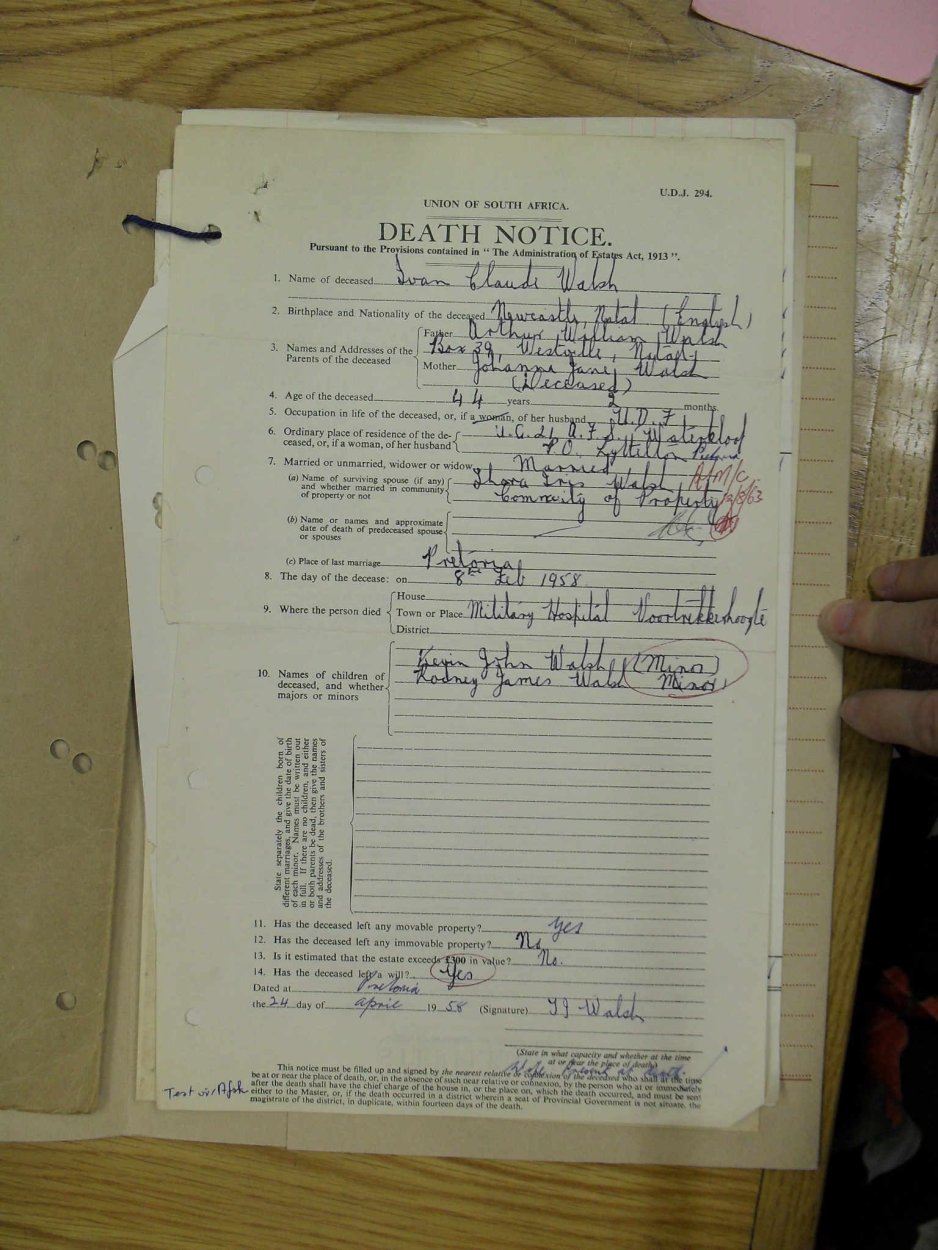 U.D.J. 294.
UNION OF SOUTH AFRICA.
DEATH NOTICE.
Pursuant to the Provisions contained in "The Administration of Estates Act, 1913".
1. Name of deceased Ivan Claude Walsh
2. Birthplace and Nationality of the deceased Newcastle, Natal (English)
3. Names and Addresses of the Parents of the deceased
Father Arthur William Walsh
Box 39, Westville, Natal
Mother Johanna Jane Walsh
(Deceased)
4. Age of the deceased 44 years 2 months.
5. Occupation in life of the deceased, or, if a woman, of her husband U.D.F.
6. Ordinary place of residence of the deceased, or, if a woman, of her husband
Waterkloof
P.O. Lyttelton Pretoria
7. Married or unmarried, widower or widow Married
(a) Name of surviving spouse (if any) and whether married in community of property or not
Iris Walsh
Community of Property
13/8/63
(b) Name or names and approximate date of death of predeceased spouse or spouses
(c) Place of last marriage Pretoria
8. The day of the decease: on 8th Feb 1958
9. Where the person died
House
Town or Place Military Hospital Voortrekkerhoogte
District
10. Names of children of deceased, and whether majors or minors
Kevin John Walsh (Minor)
Rodney James Walsh Minor
State separately the children born of
different marriages, and give the date of birth
of each minor. Names must be written out
in full. If there are no children, and either
or both parents be dead, then give the names
and addresses of the brothers and sisters of
the deceased.
11. Has the deceased left any movable property? Yes
12. Has the deceased left any immovable property? No
13. Is it estimated that the estate exceeds £300 in value? No.
14. Has the deceased left a will? Yes
Dated at Pretoria
the 24 day of April 19 58 (Signature) Walsh
(State in what capacity and whether at the time
at or near the place of death)
This notice must be filled up and signed by the nearest relative or connexion of the deceased who shall at the time
be at or near the place of death, or, in the absence of such near relative or connexion, by the person who at or immediately
after the death shall have the chief charge of the house in, or the place on, which the death occurred, and must be sent
either to the Master, or, if the death occurred in a district wherein a seat of Provincial Government is not situate, the
magistrate of the district, in duplicate, within fourteen days of the death.